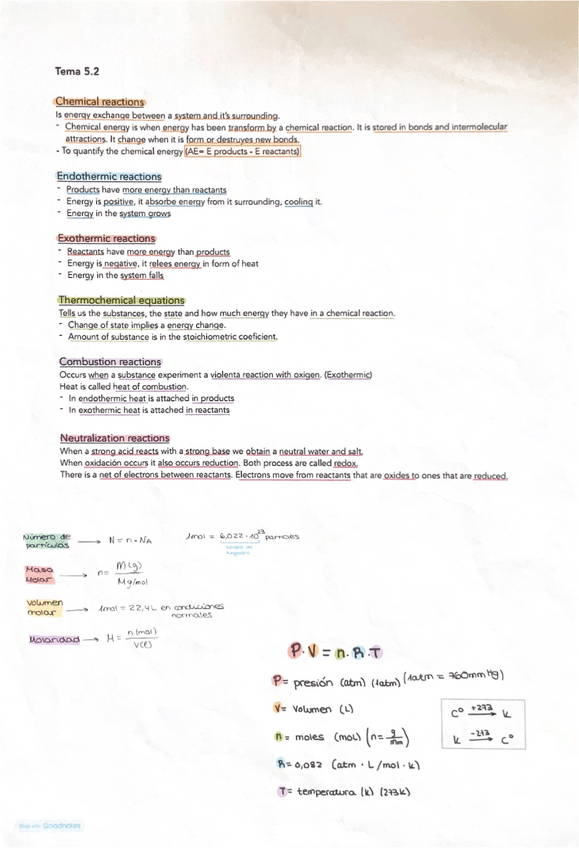 Tema 5.2
Chemical reactions
Is energy exchange between a system and it's surrounding.
- Chemical energy is when energy has been transform by a chemical reaction. It is stored in bonds and intermolecular
attractions. It change when it is form or destruyes new bonds.
- To quantify the chemical energy (AE= E products - E reactants)
Endothermic reactions
- Products have more energy than reactants
- Energy is positive, it absorbe energy from it surrounding, cooling it.
- Energy in the system grows
Exothermic reactions
- Reactants have more energy than products
- Energy is negative, it relees energy in form of heat
- Energy in the system falls
Thermochemical equations
Tells us the substances, the state and how much energy they have in a chemical reaction.
- Change of state implies a energy change.
- Amount of substance is in the stoichiometric coeficient.
Combustion reactions
Occurs when a substance experiment a violenta reaction with oxigen. (Exothermic)
Heat is called heat of combustion.
- In endothermic heat is attached in products
- In exothermic heat is attached in reactants
Neutralization reactions
When a strong acid reacts with a strong base we obtain a neutral water and salt.
When oxidación occurs it also occurs reduction. Both process are called redox.
There is a net of electrons between reactants. Electrons move from reactants that are oxides to ones that are reduced.
Número de partículas → N = n · NA 1mol = 6,022 · 10²³
número de Avogadro
Masa Molar → n = M(g) / Mg/mol
Volumen molar → 1mol = 22,4L en condiciones normales
Molaridad → M = n(mol) / V(l)
P · V = n · R · T
P = presión (atm) (1atm) (1atm = 760mmHg)
V = Volumen (L)
n = moles (mol) (n = g/mm)
R = 0,082 (atm · L / mol · k)
T = temperatura (k) (273k)
Cº +273 → k
k -273 → Cº
Made with Goodnotes